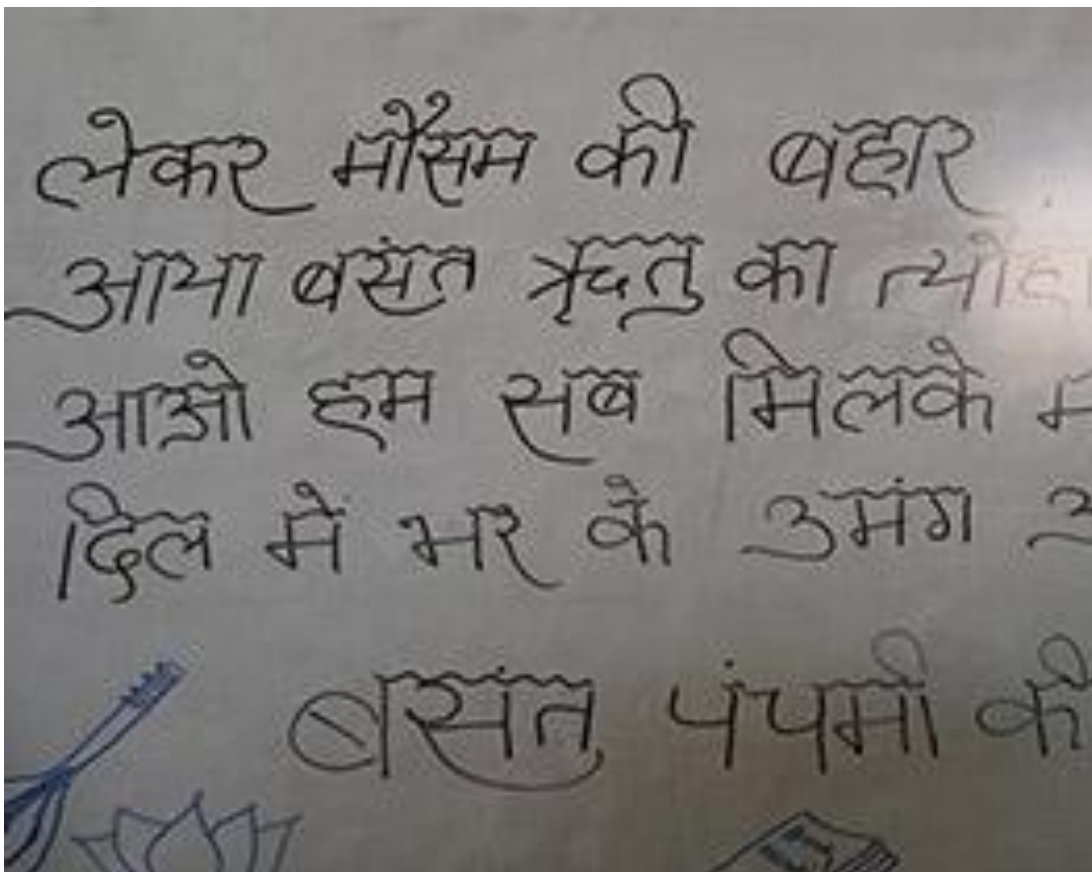 लेकर मौसम की बहार
आया बसंत ऋतु का
आओ हम सब मिलके
दिल में भर के उमंग
बसंत पंचमी की